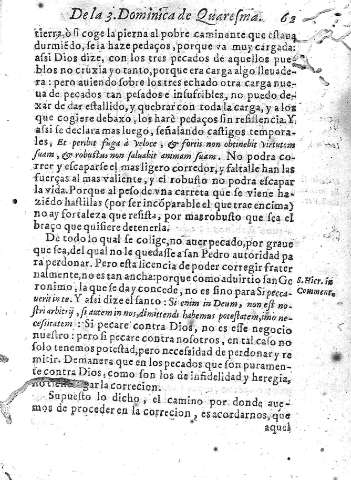 De la 3. Dominica de Quaresma. 62
tierra, o si coge la pierna al pobre caminante que estaua
durmiẽdo, se la haze pedaços, porque va muy cargada:
assi Dios dize, con los tres pecados de aquellos pue
blos no cruxia yo tanto, porque era carga algo lleuade
ra: pero auiendo sobre los tres echado otra carga nue
ua de pecados tan pesados e insufribles, no puedo de-
xar de dar estallido, y quebrar con toda la carga, y a los
que cogiere debaxo, los harè pedaços sin resistencia. Y
assi se declara mas luego, señalando castigos tempora-
les, Et peribit fuga à veloce, & fortis non obtinebit virtutem
suam, & robustus non saluabit animam suam. No podra co-
rrer y escaparse el mas ligero corredor, y faltalle han las
fuerças al mas valiente, y el robusto no podra escapar
la vida. Porque al peso de vna carreta que se viene ha-
ziẽdo hastillas (por ser incõparable el que trae encima)
no ay fortaleza que resista, por mas robusto que sea el
braço que quisiere detenerla.
De todo lo qual se colige, no auer pecado, por graue
que sea, del qual no le quedasse a san Pedro autoridad pa
ra perdonar. Pero esta licencia de poder corregir frater
nalmente, no es tan ancha: porque como aduirtio san Ge
ronimo, la que se da y concede, no es sino para Si pecca-
uerit in te. Y assi dize el santo: Si enim in Deum, non est no-
stri arbitrij, si autem in nos, dimittendi habemus potestatem, imo ne-
cessitatem: Si pecare contra Dios, no es esse negocio
nuestro: pero si pecare contra nosotros, en tal caso no
solo tenemos potestad, pero necessidad de perdonar y re
mitir. De manera que en los pecados que son puramen-
te contra Dios, como son los de infidelidad y heregia,
no tiene lugar la correcion.
Supuesto lo dicho, el camino por donde aue-
mos de proceder en la correcion, es acordarnos, que
aquel
S. Hier. in
Comment.